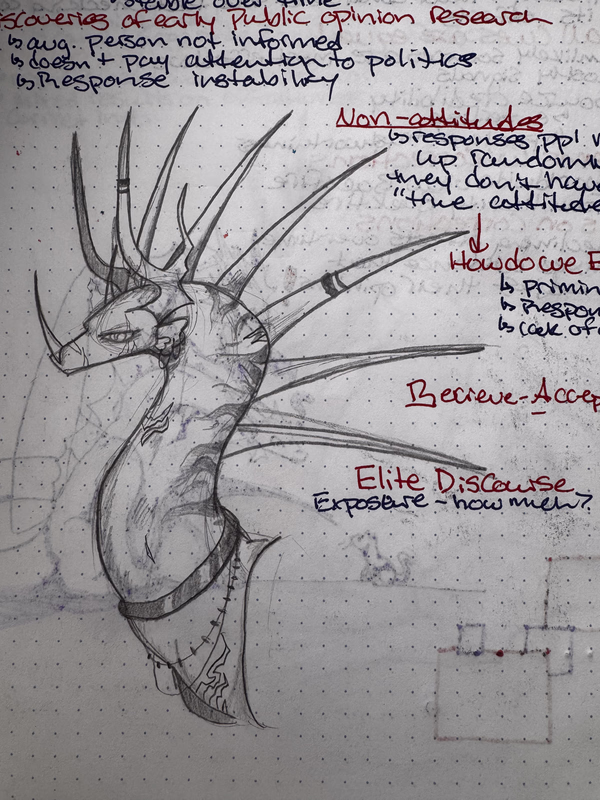 stable over time
scoveries of early public opinion research
↳ avg. person not informed
↳ doesn't pay attention to politics
↳ Response instability
Non-attitudes
↳ responses ppl
up random
they don't have
"true attitude
↓
How do we E
↳ primin
↳ Respon
↳ lack of
Recieve-Accep
Elite Discourse
Exposure - how much?